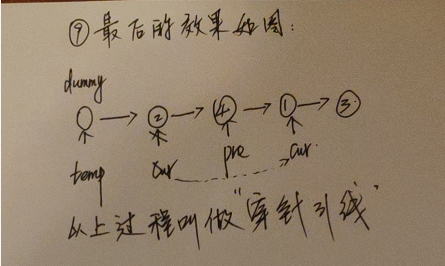 ⑨ 最后的效果如图:
dummy
② ④ ① ③
temp cur pre cur
以上过程叫做“穿针引线”